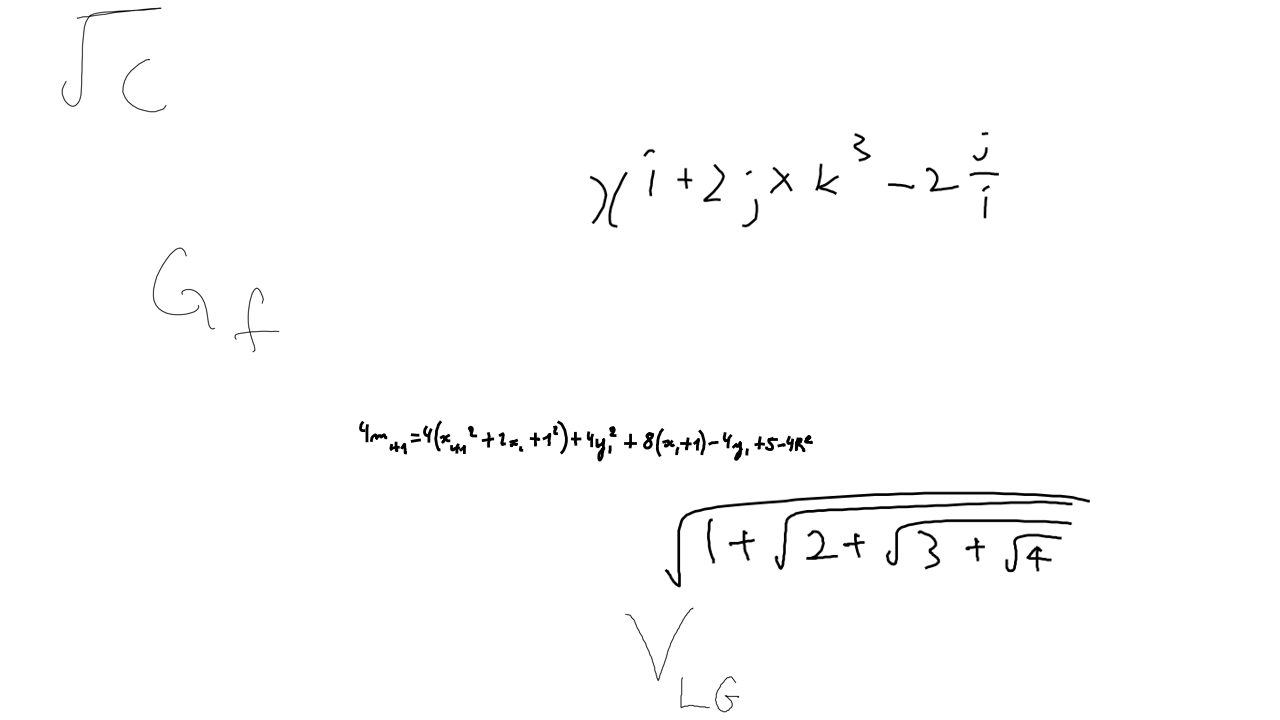 √c
x^i + 2j × k^3 - 2 j/i
G_f
4m_{i+1} = 4(x_{i+1}^2 + 2x_i + 1^2) + 4y_i^2 + 8(x_i + 1) - 4y_i + 5 - 4R^2
√(1 + √(2 + √(3 + √4)))
V_{LG}